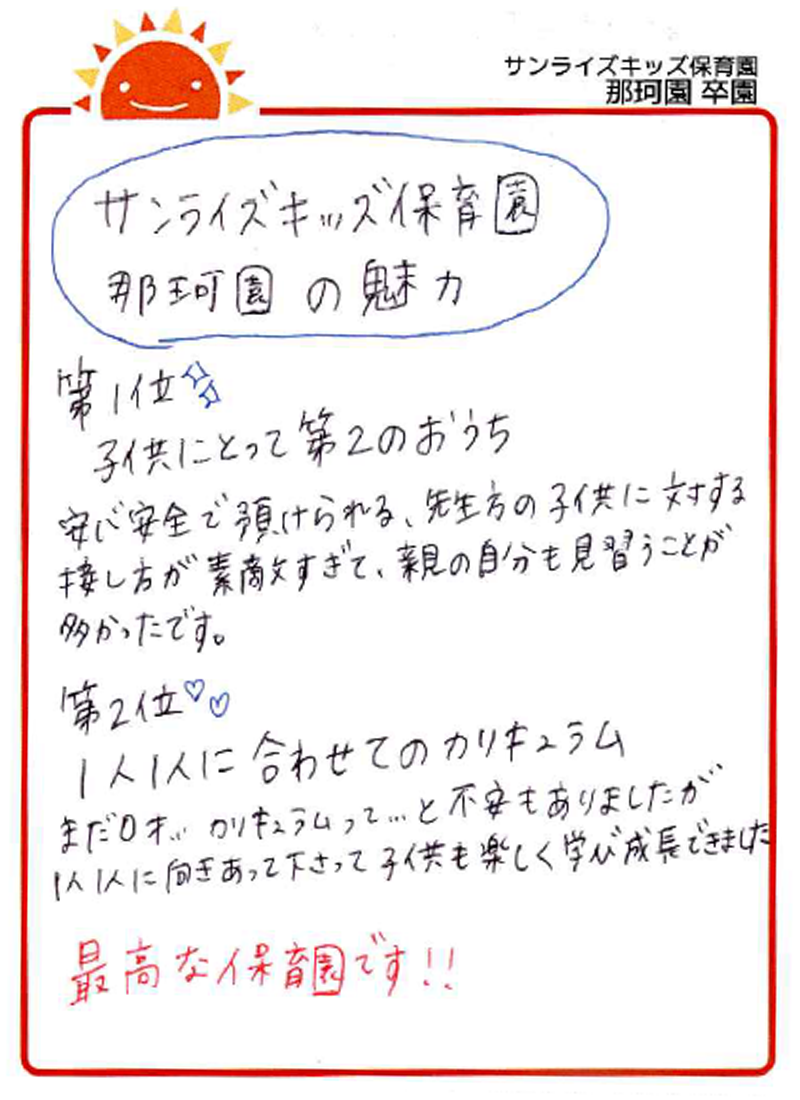 サンライズキッズ保育園
那珂園 卒園
サンライズキッズ保育園
那珂園の魅力
第1位
子供にとって第2のおうち
安心安全で預けられる、先生方の子供に対する
接し方が素敵すぎて、親の自分も見習うことが
多かったです。
第2位♡♡
1人1人に合わせてのカリキュラム
まだ0才… カリキュラムって…と不安もありましたが
1人1人に向きあって下さって子供も楽しく学び成長できました
最高な保育園です!!